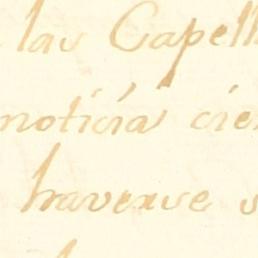 las Capell
noticia cier
haverse s